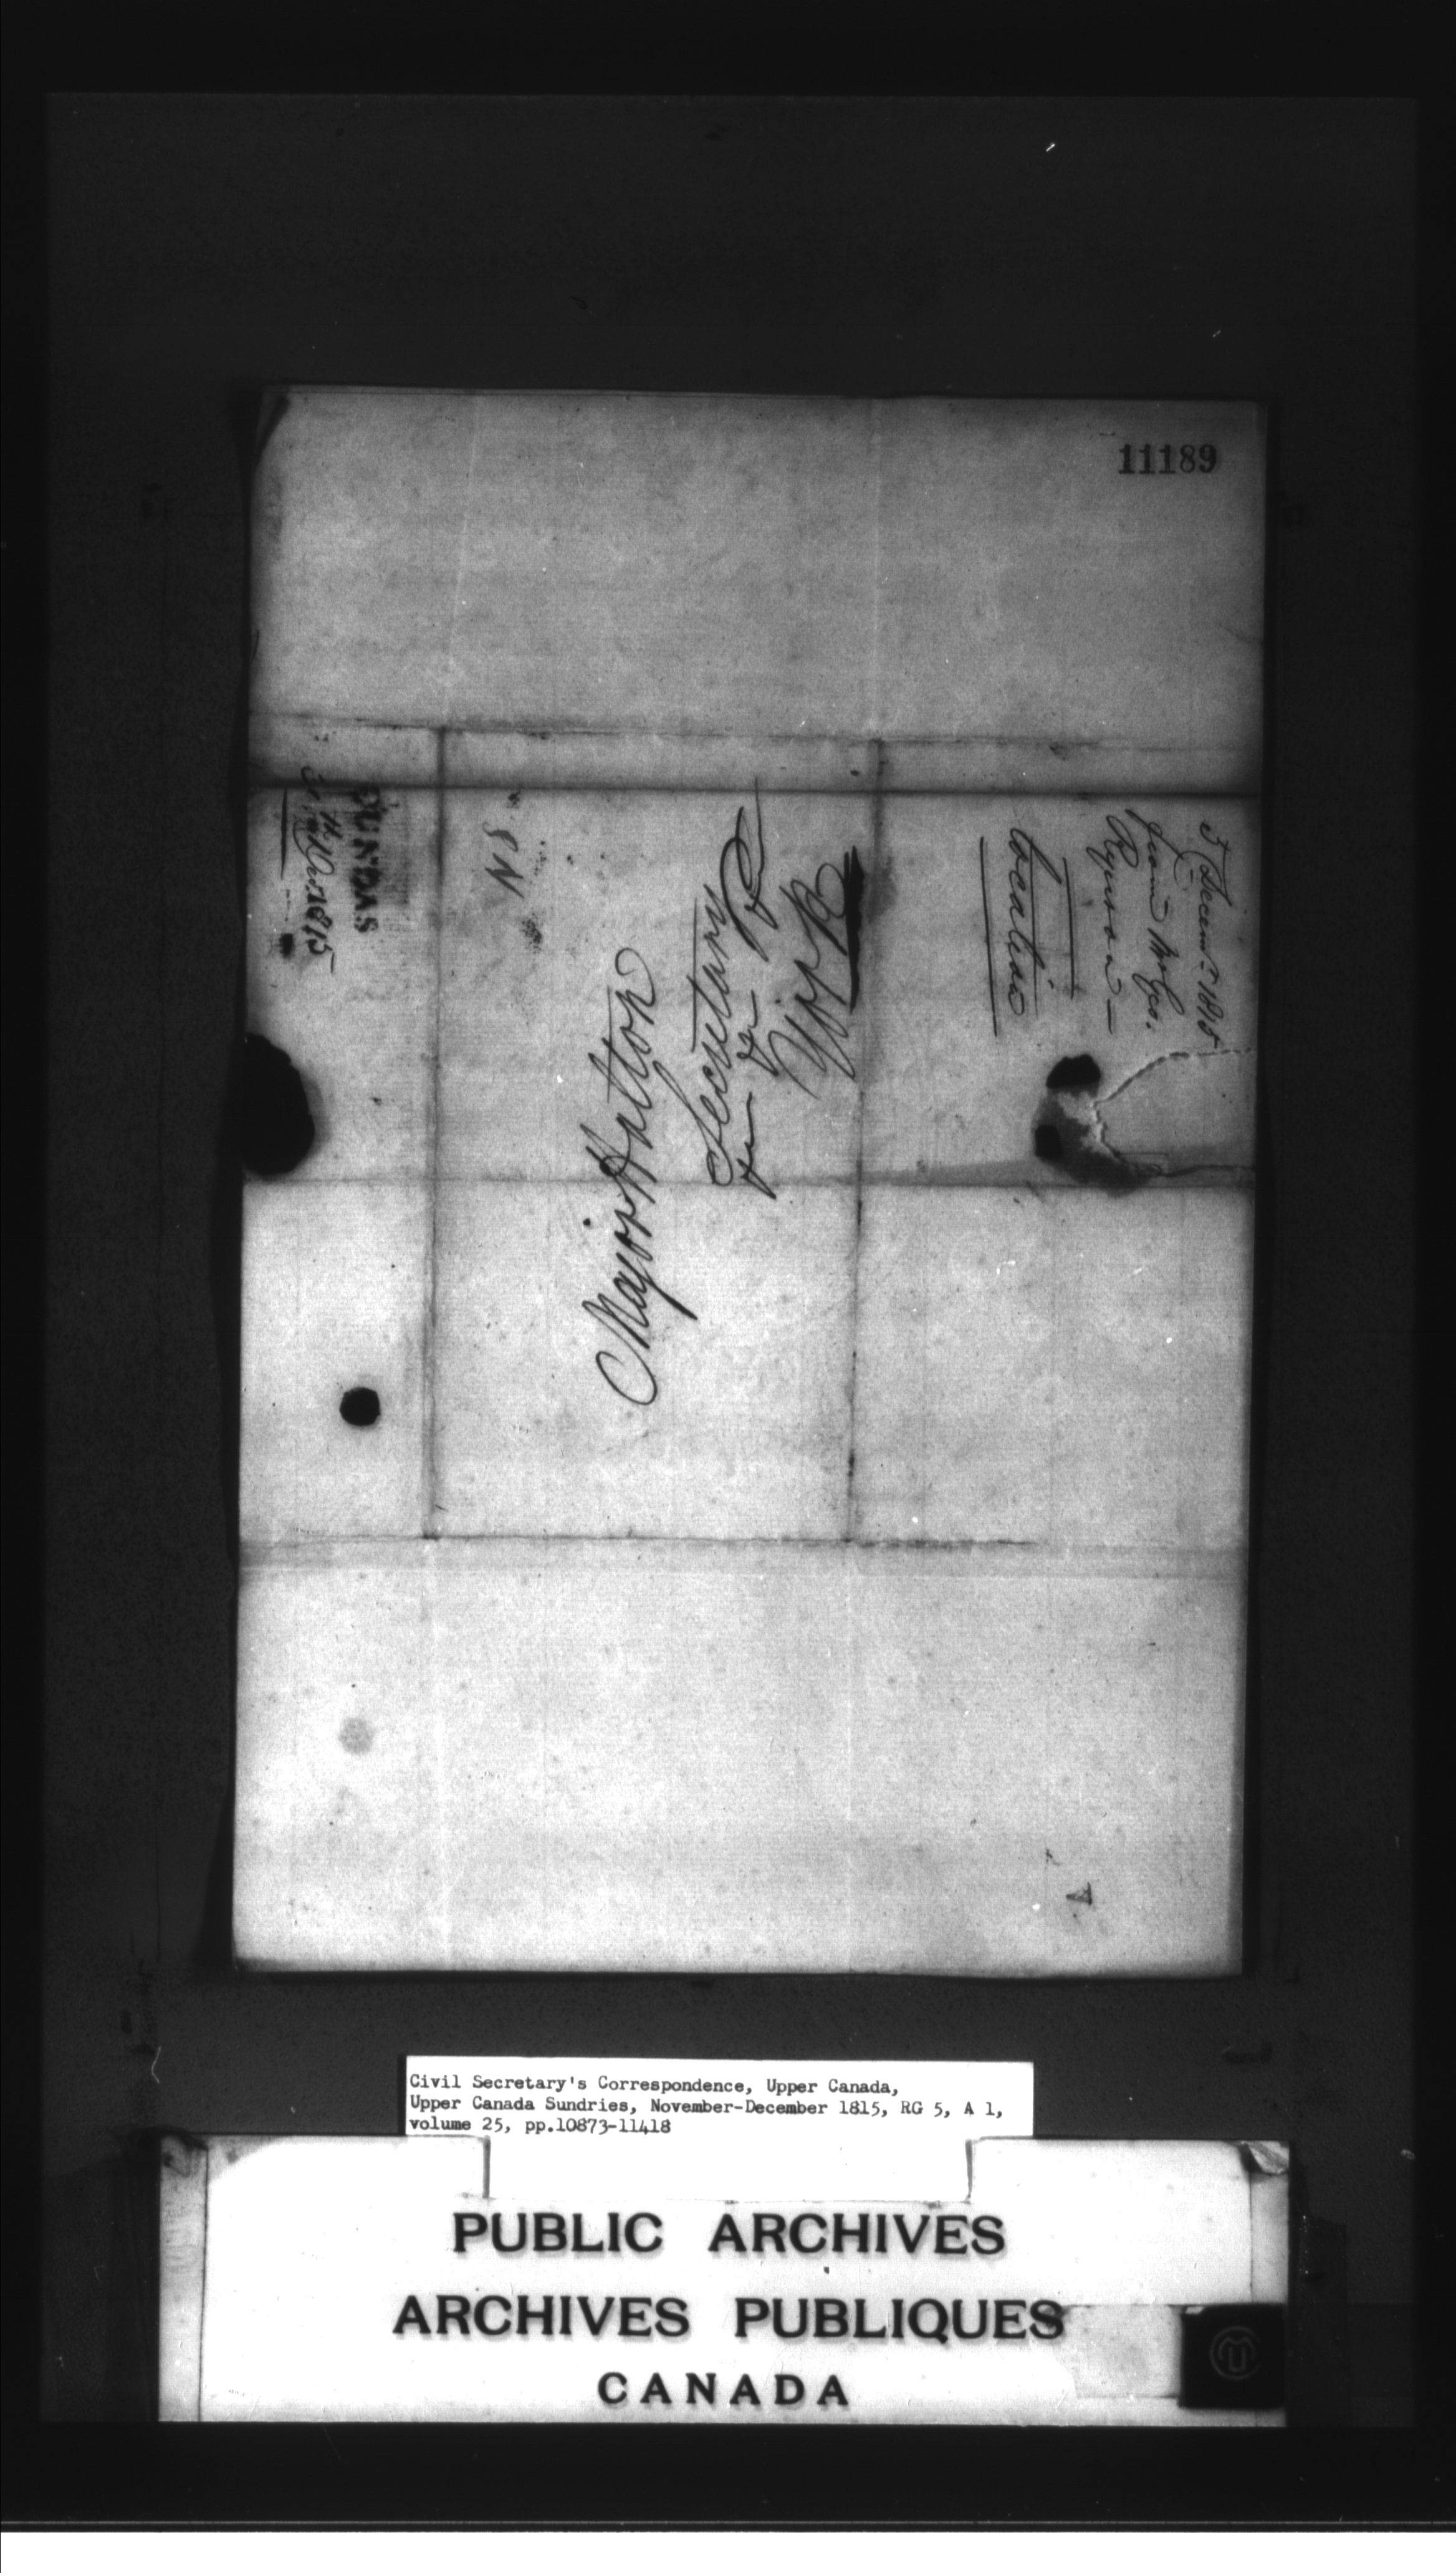 11189
DUNDAS
1815
N 8
Major Halton
Secretary
York
5 Decem.r 1815
from Mr Geo.
Ryerson —
Location
Civil Secretary's Correspondence, Upper Canada,
Upper Canada Sundries, November-December 1815, RG 5, A 1,
volume 25, pp.10873-11418
PUBLIC ARCHIVES
ARCHIVES PUBLIQUES
CANADA